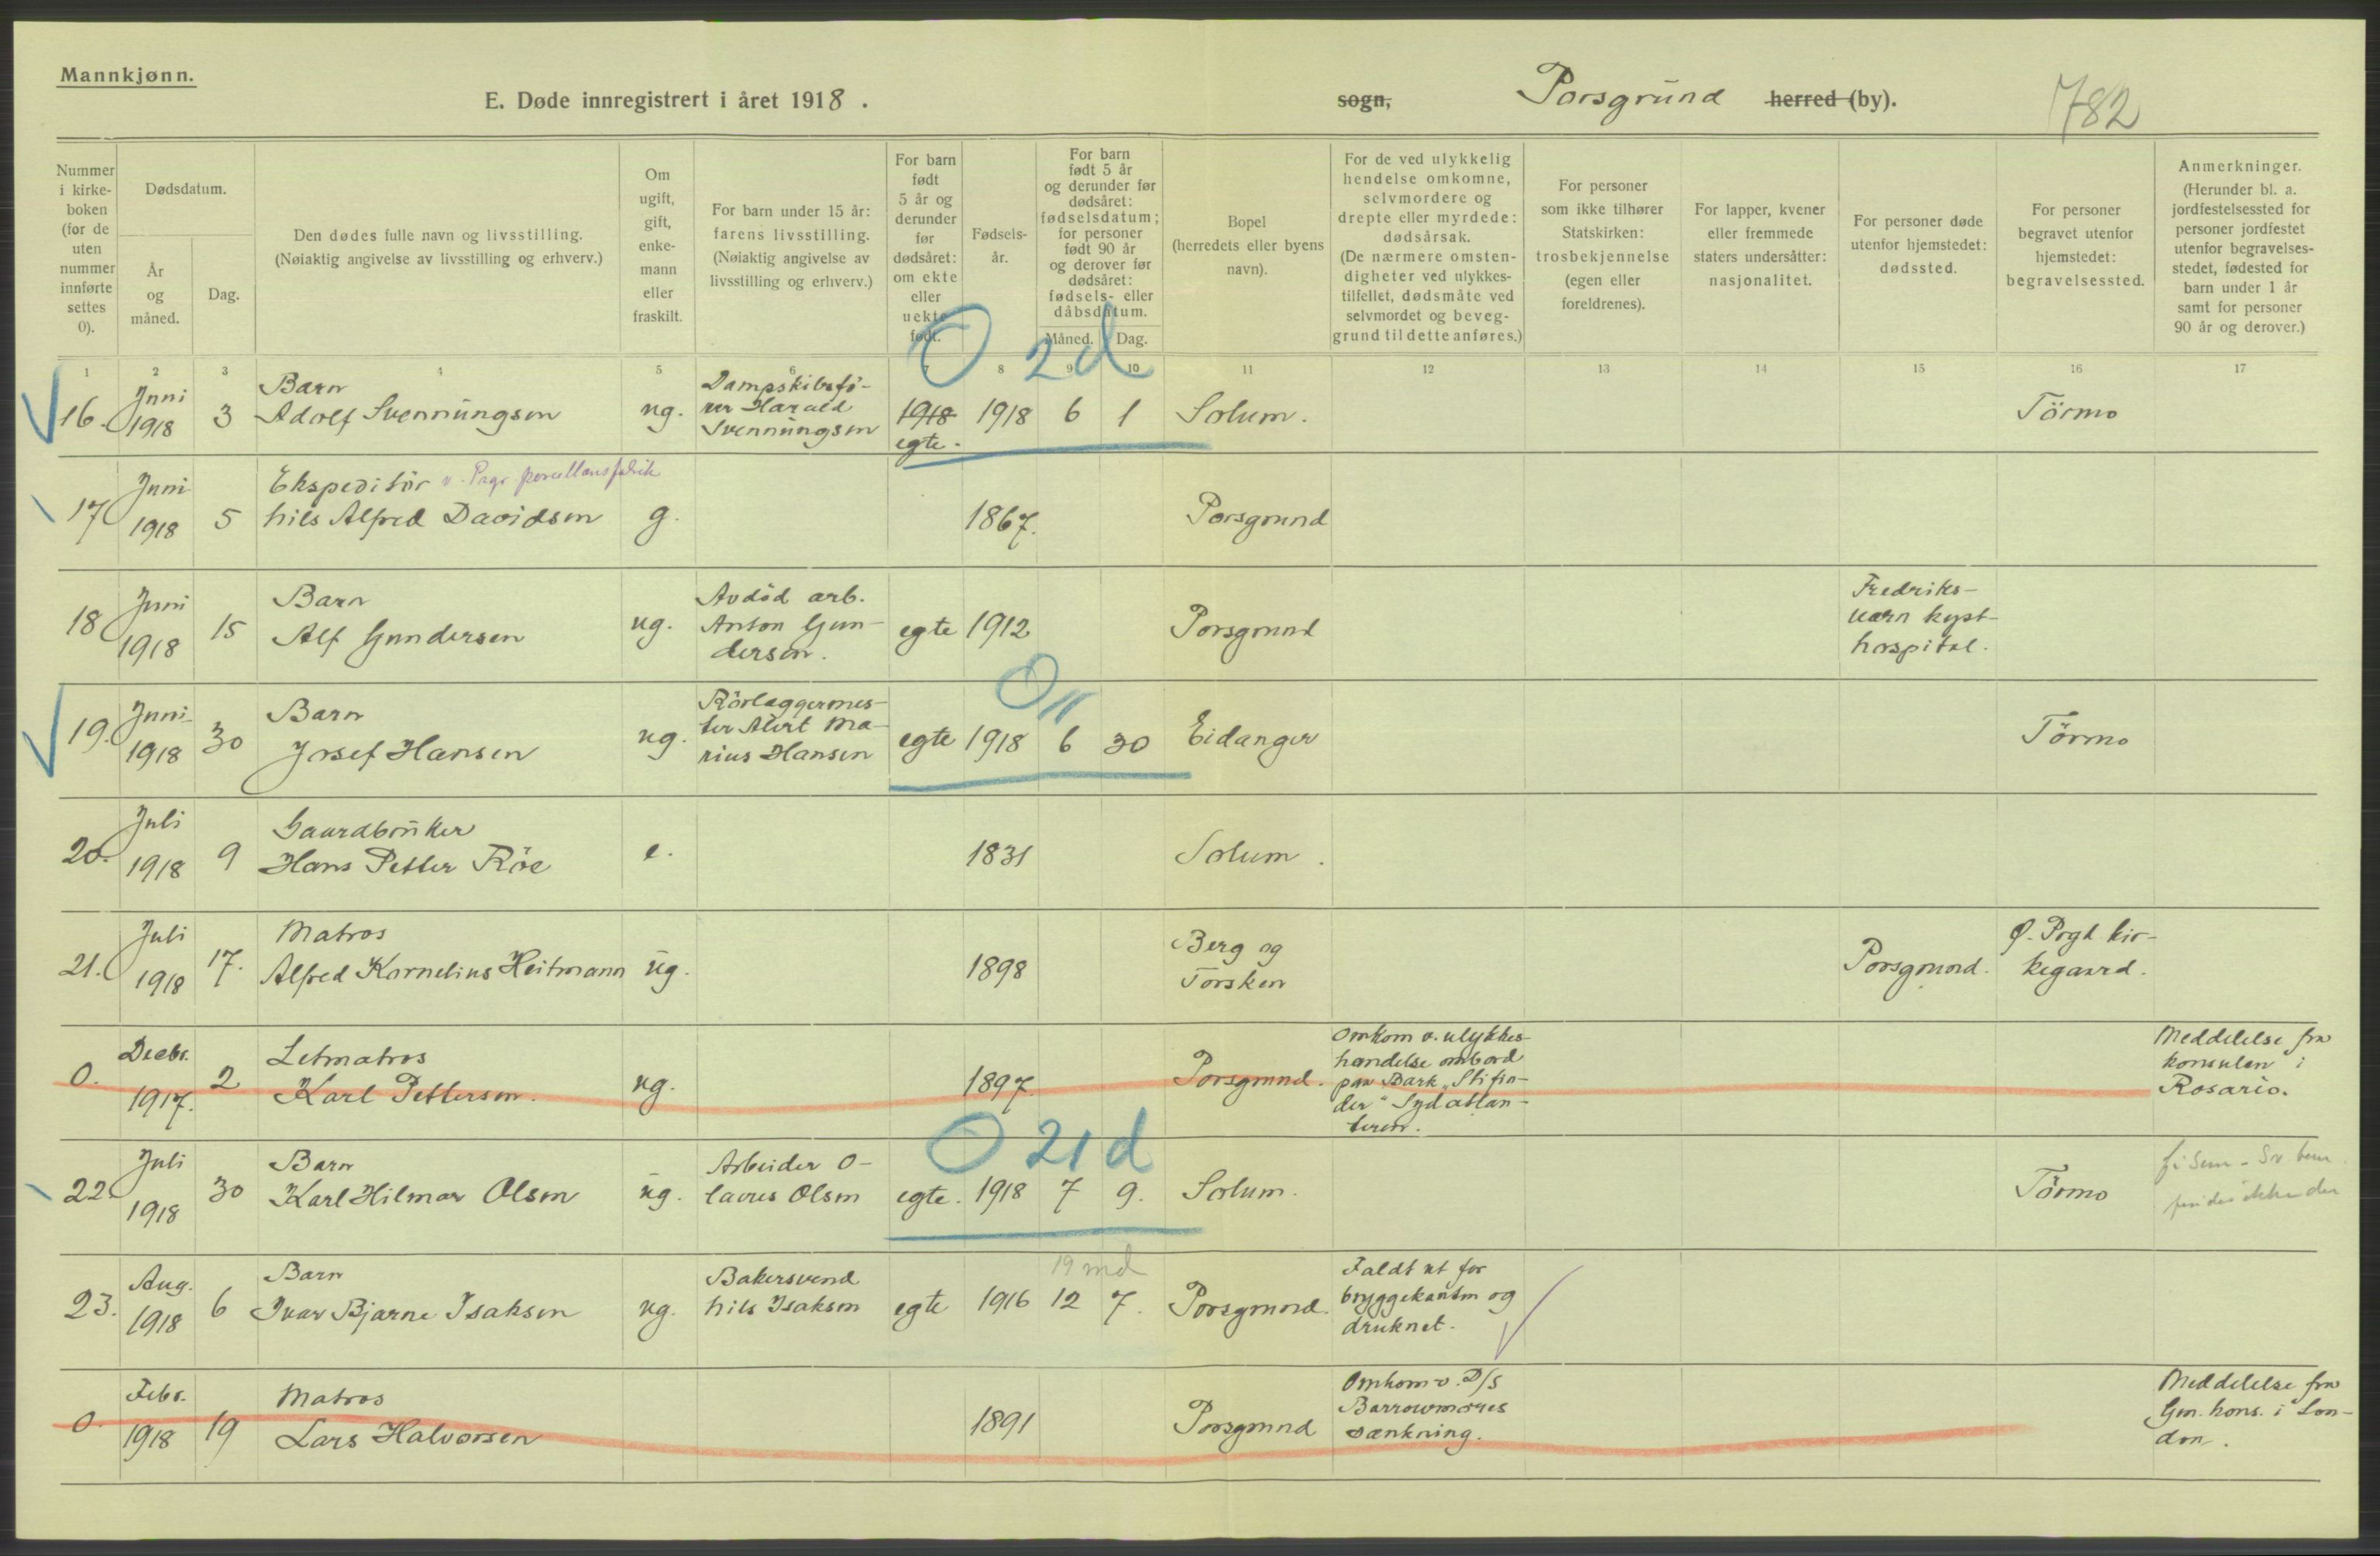 Mannkjønn.
E. Døde innregistrert i året 1918.
sogn, Porsgrund herred (by).
782
Nummer i kirkeboken (for de uten nummer innførte settes 0).
Dødsdatum.
År og måned.
Dag.
Den dødes fulle navn og livsstilling.
(Nøiaktig angivelse av livsstilling og erhverv.)
Om ugift, gift, enkemann eller fraskilt.
For barn under 15 år: farens livsstilling.
(Nøiaktig angivelse av livsstilling og erhverv.)
For barn født 5 år og derunder før dødsåret: om ekte eller uekte født.
Fødselsår.
For barn født 5 år og derunder før dødsåret: fødselsdatum; for personer født 90 år og derover før dødsåret: fødsels- eller dåbsdatum.
Måned. Dag.
Bopel (herredets eller byens navn).
For de ved ulykkelig hendelse omkomne, selvmordere og drepte eller myrdede: dødsårsak.
(De nærmere omstendigheter ved ulykkestilfellet, dødsmåte ved selvmordet og beveggrund til dette anføres.)
For personer som ikke tilhører Statskirken: trosbekjennelse (egen eller foreldrenes).
For lapper, kvener eller fremmede staters undersåtter: nasjonalitet.
For personer døde utenfor hjemstedet: dødssted.
For personer begravet utenfor hjemstedet: begravelsessted.
Anmerkninger.
(Herunder bl. a. jordfestelsessted for personer jordfestet utenfor begravelsesstedet, fødested for barn under 1 år samt for personer 90 år og derover.)
1 2 3 4 5 6 7 8 9 10 11 12 13 14 15 16 17
0 2 d
16. Juni 1918 3 Barn Adolf Svennungsen ug. Dampskibsfører Harald Svennungsen 1918 egte. 1918 6 1 Solum. Törmo
17 Juni 1918 5 Ekspeditör v. Pors. porcellansfabrik Nils Alfred Davidsen g. 1867. Porsgrund
18 Juni 1918 15 Barn Alf Gundersen ug. Avdöd arb. Anton Gundersen. egte 1912 Porsgrund Fredriksværn kysthospital.
0 11
19. Juni 1918 30 Barn Josef Hansen ug. Rörlæggermester Alert Marius Hansen egte 1918 6 30 Eidanger Törmo
20. Juli 1918 9 Gaardbruker Hans Petter Röe e. 1831 Solum.
21. Juli 1918 17. Matros Alfred Kornelius Heitmann ug. 1898 Berg og Torsken Porsgrund. Ø. Prgd. kirkegaard.
0. Decbr. 1917. 2 Letmatros Karl Pettersen. ug. 1897. Porsgrund. Omkom v. ulykkeshændelse ombord paa Bark "Stifinder" Sydatlanteren. Meddelelse fra konsulen i Rosario.
0 21 d
22 Juli 1918 30 Barn Karl Hilmar Olsen ug. Arbeider Olavus Olsen egte. 1918 7 9. Solum. Törmo
findes ikke der
19 md
23. Aug. 1918 6 Barn Ivar Bjarne Isaksen ug. Bakersvend Nils Isaksen egte 1916 12 7. Porsgrund. Faldt ut for bryggekanten og druknet.
0. Febr. 1918 19 Matros Lars Halvorsen 1891 Porsgrund Omkom v. D/S Barrowmores sænkning. Meddelelse fra Gen. kons. i London.